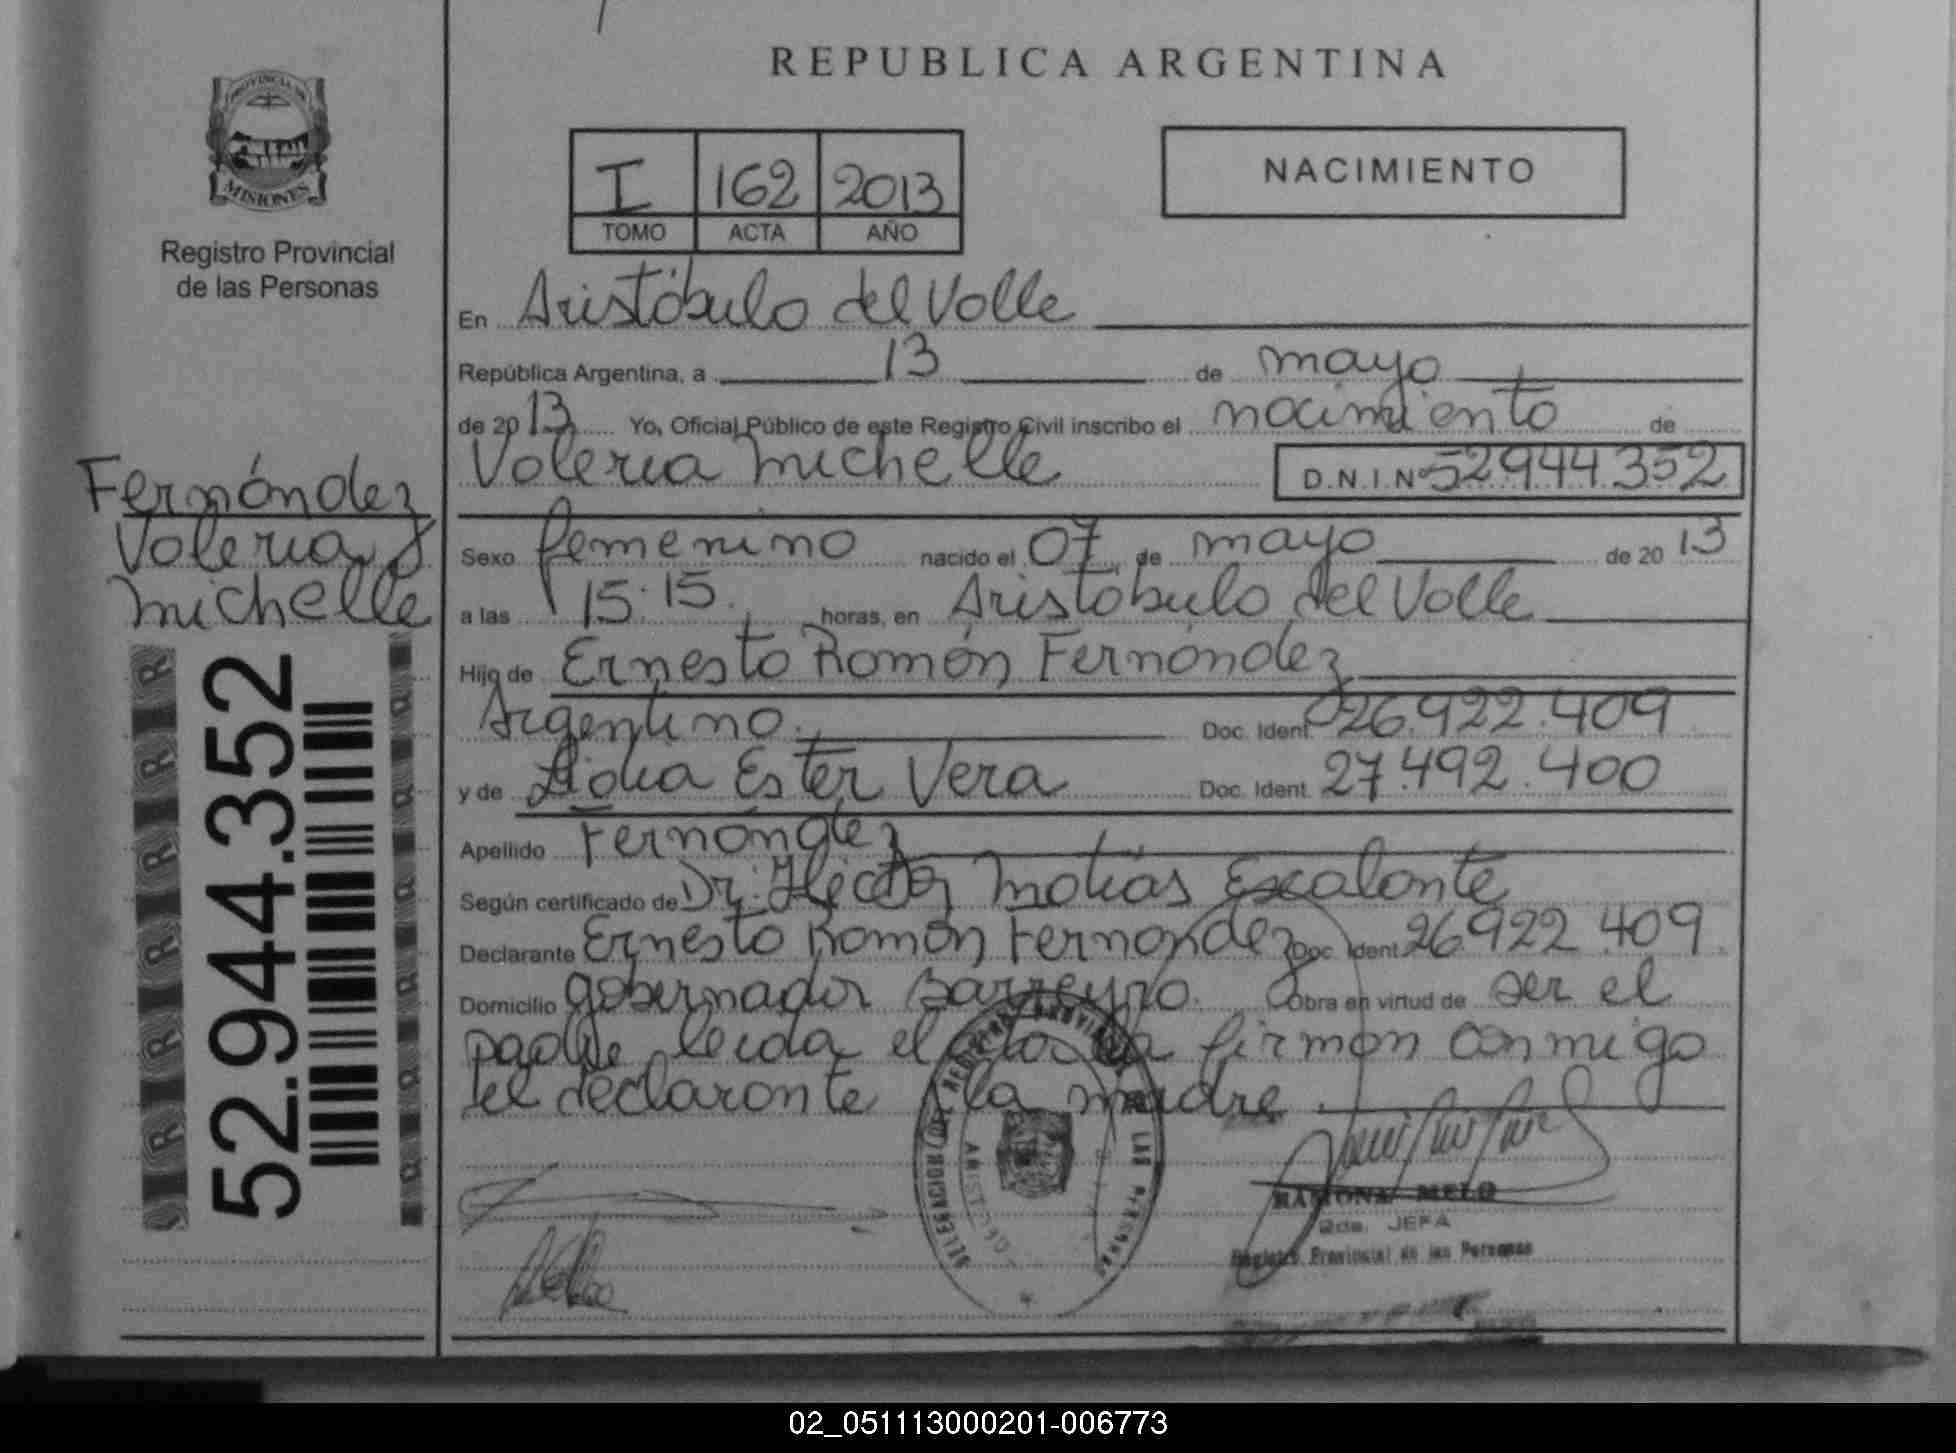 REPUBLICA ARGENTINA
PROVINCIA DE
MISIONES
Registro Provincial
de las Personas
I 162 2013
TOMO ACTA AÑO
NACIMIENTO
En Aristóbulo del Valle
República Argentina, a 13 de mayo
de 2013 Yo, Oficial Público de este Registro Civil inscribo el nacimiento de
Valeria Michelle D.N.I.Nº 52944352
Fernández
Valeria
Michelle
52.944.352
Sexo femenino nacido el 07 de mayo de 2013
a las 15:15. horas, en Aristóbulo del Valle
Hijo de Ernesto Ramón Fernández
Argentino. Doc. Ident. 26.922.409
y de Lidia Ester Vera Doc. Ident. 27.492.400
Apellido Fernández
Según certificado de Dr. Héctor Matías Escalante
Declarante Ernesto Ramón Fernández Doc. Ident. 26.922.409.
Domicilio gobernador Barreyro. Obra en virtud de ser el
padre, leida el acta la firman conmigo
el declarante y la madre
RAMONA MELO
2da. JEFA
Registro Provincial de las Personas
02_051113000201-006773